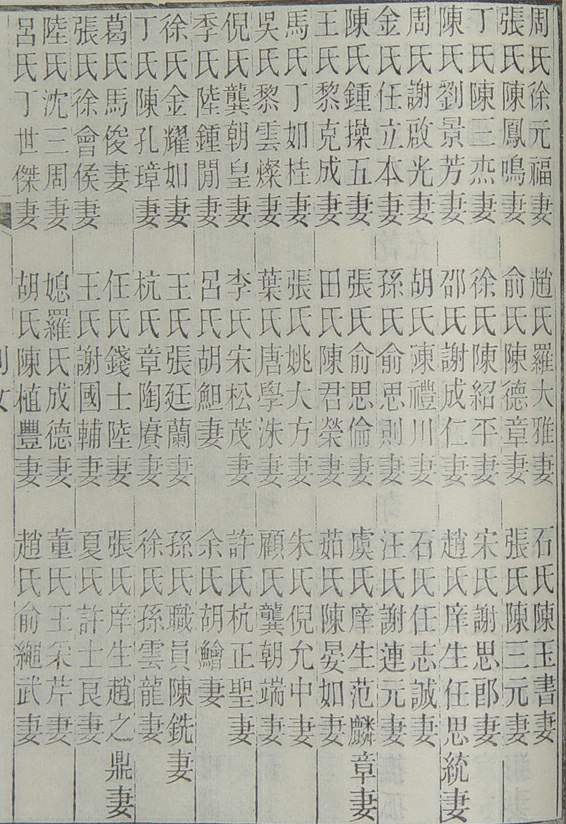 周氏徐元福妻 趙氏羅大雅妻 石氏陳玉書妻
張氏陳鳳鳴妻 俞氏陳德章妻 張氏陳三元妻
丁氏陳三杰妻 徐氏陳紹平妻 宋氏謝思郎妻
陳氏劉景芳妻 邵氏謝成仁妻 趙氏庠生任思統妻
周氏謝啟光妻 胡氏陳禮川妻 石氏任志誠妻
金氏任立本妻 孫氏俞思則妻 汪氏謝連元妻
陳氏鍾操五妻 張氏俞思倫妻 虞氏庠生范麟章妻
王氏黎克成妻 田氏陳君榮妻 茹氏陳晏如妻
馬氏丁如桂妻 張氏姚大方妻 朱氏倪允中妻
吳氏黎雲燦妻 葉氏唐學洙妻 顧氏龔朝端妻
倪氏龔朝皇妻 李氏宋松茂妻 許氏杭正聖妻
季氏陸鍾閒妻 呂氏胡鮰妻 余氏胡鱠妻
徐氏金耀如妻 王氏張廷蘭妻 孫氏職員陳銑妻
丁氏陳孔璋妻 杭氏章陶賡妻 徐氏孫雲龍妻
葛氏馬俊妻 任氏錢士陸妻 張氏庠生趙之鼎妻
張氏徐會侯妻 王氏謝國輔妻 夏氏許士良妻
陸氏沈三周妻 媳羅氏成德妻 董氏王采芹妻
呂氏丁世傑妻 胡氏陳植豐妻 趙氏俞繩武妻